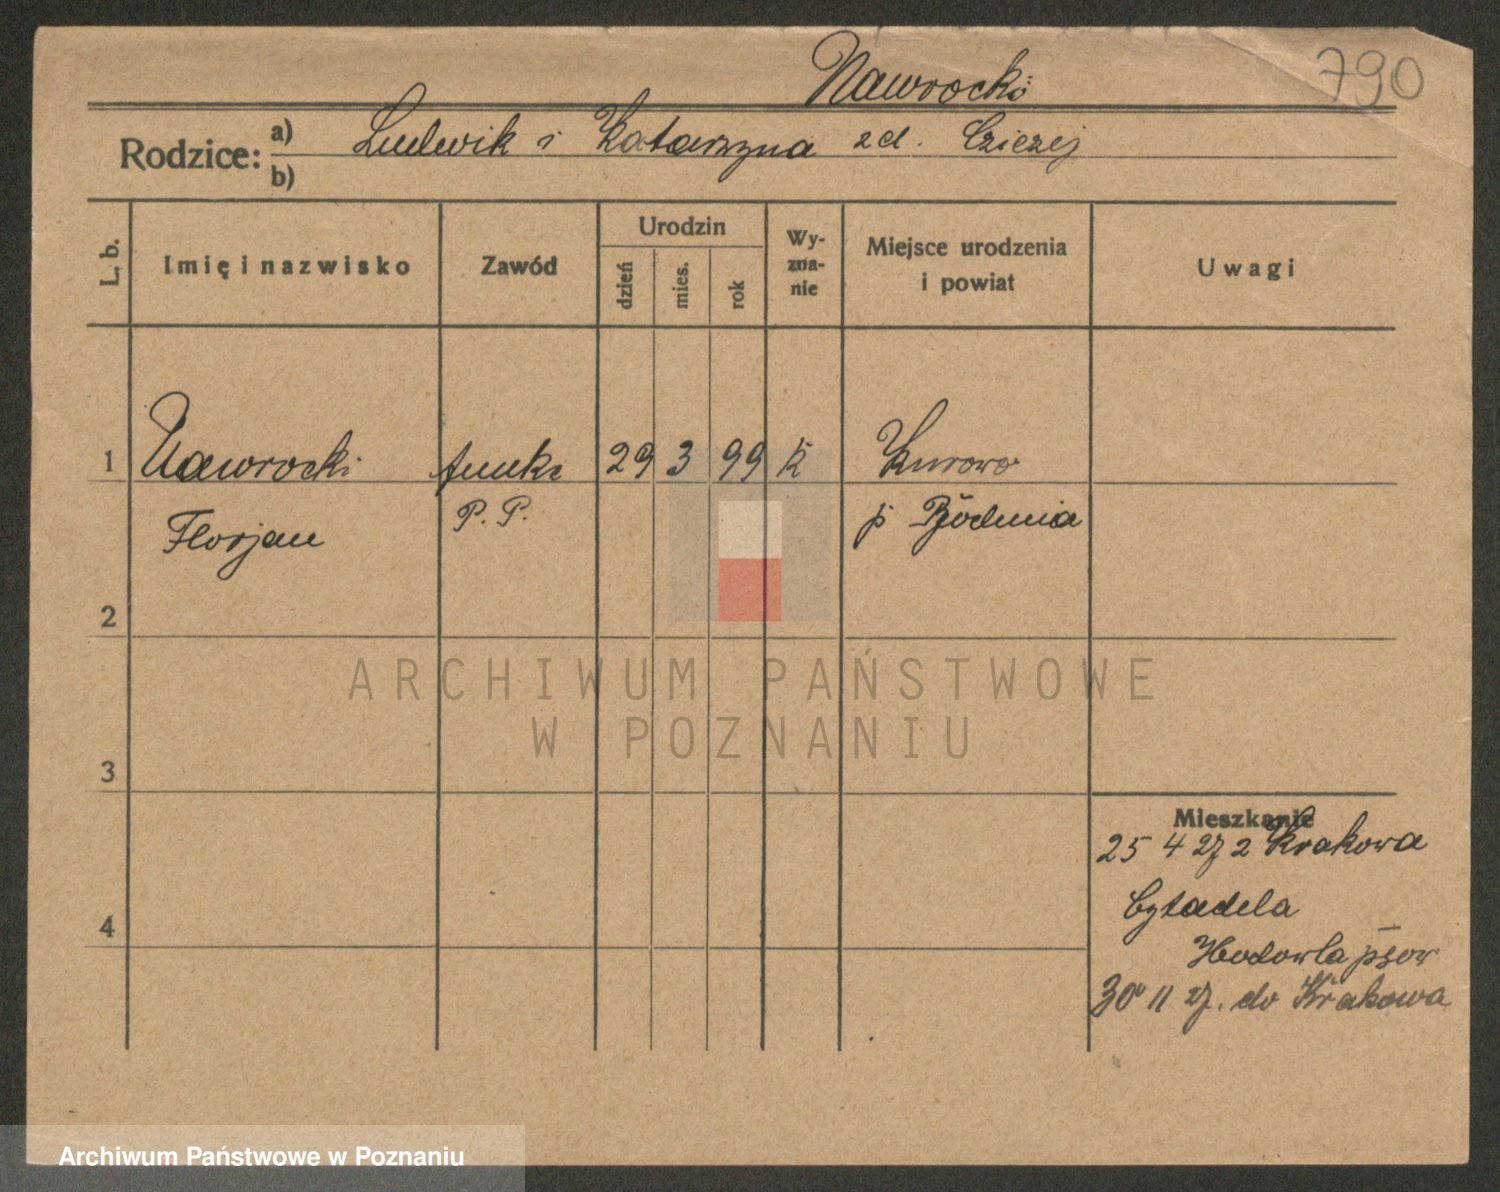 Nawrocki
790
Rodzice:
a) Ludwik i Katarzyna zd.
b)
L. b.
Imię i nazwisko
Zawód
Urodzin
dzień
mies.
rok
Wy-
zna-
nie
Miejsce urodzenia
i powiat
Uwagi
1 Nawrocki funkc 29 3 99 k Kurowo
Florjan P. P. p
2
3
4
Mieszkanie
25 4 27 z Krakowa
Cytadela
Hodowla psow
30 11 27. do Krakowa
ARCHIWUM PAŃSTWOWE
W POZNANIU
Archiwum Państwowe w Poznaniu